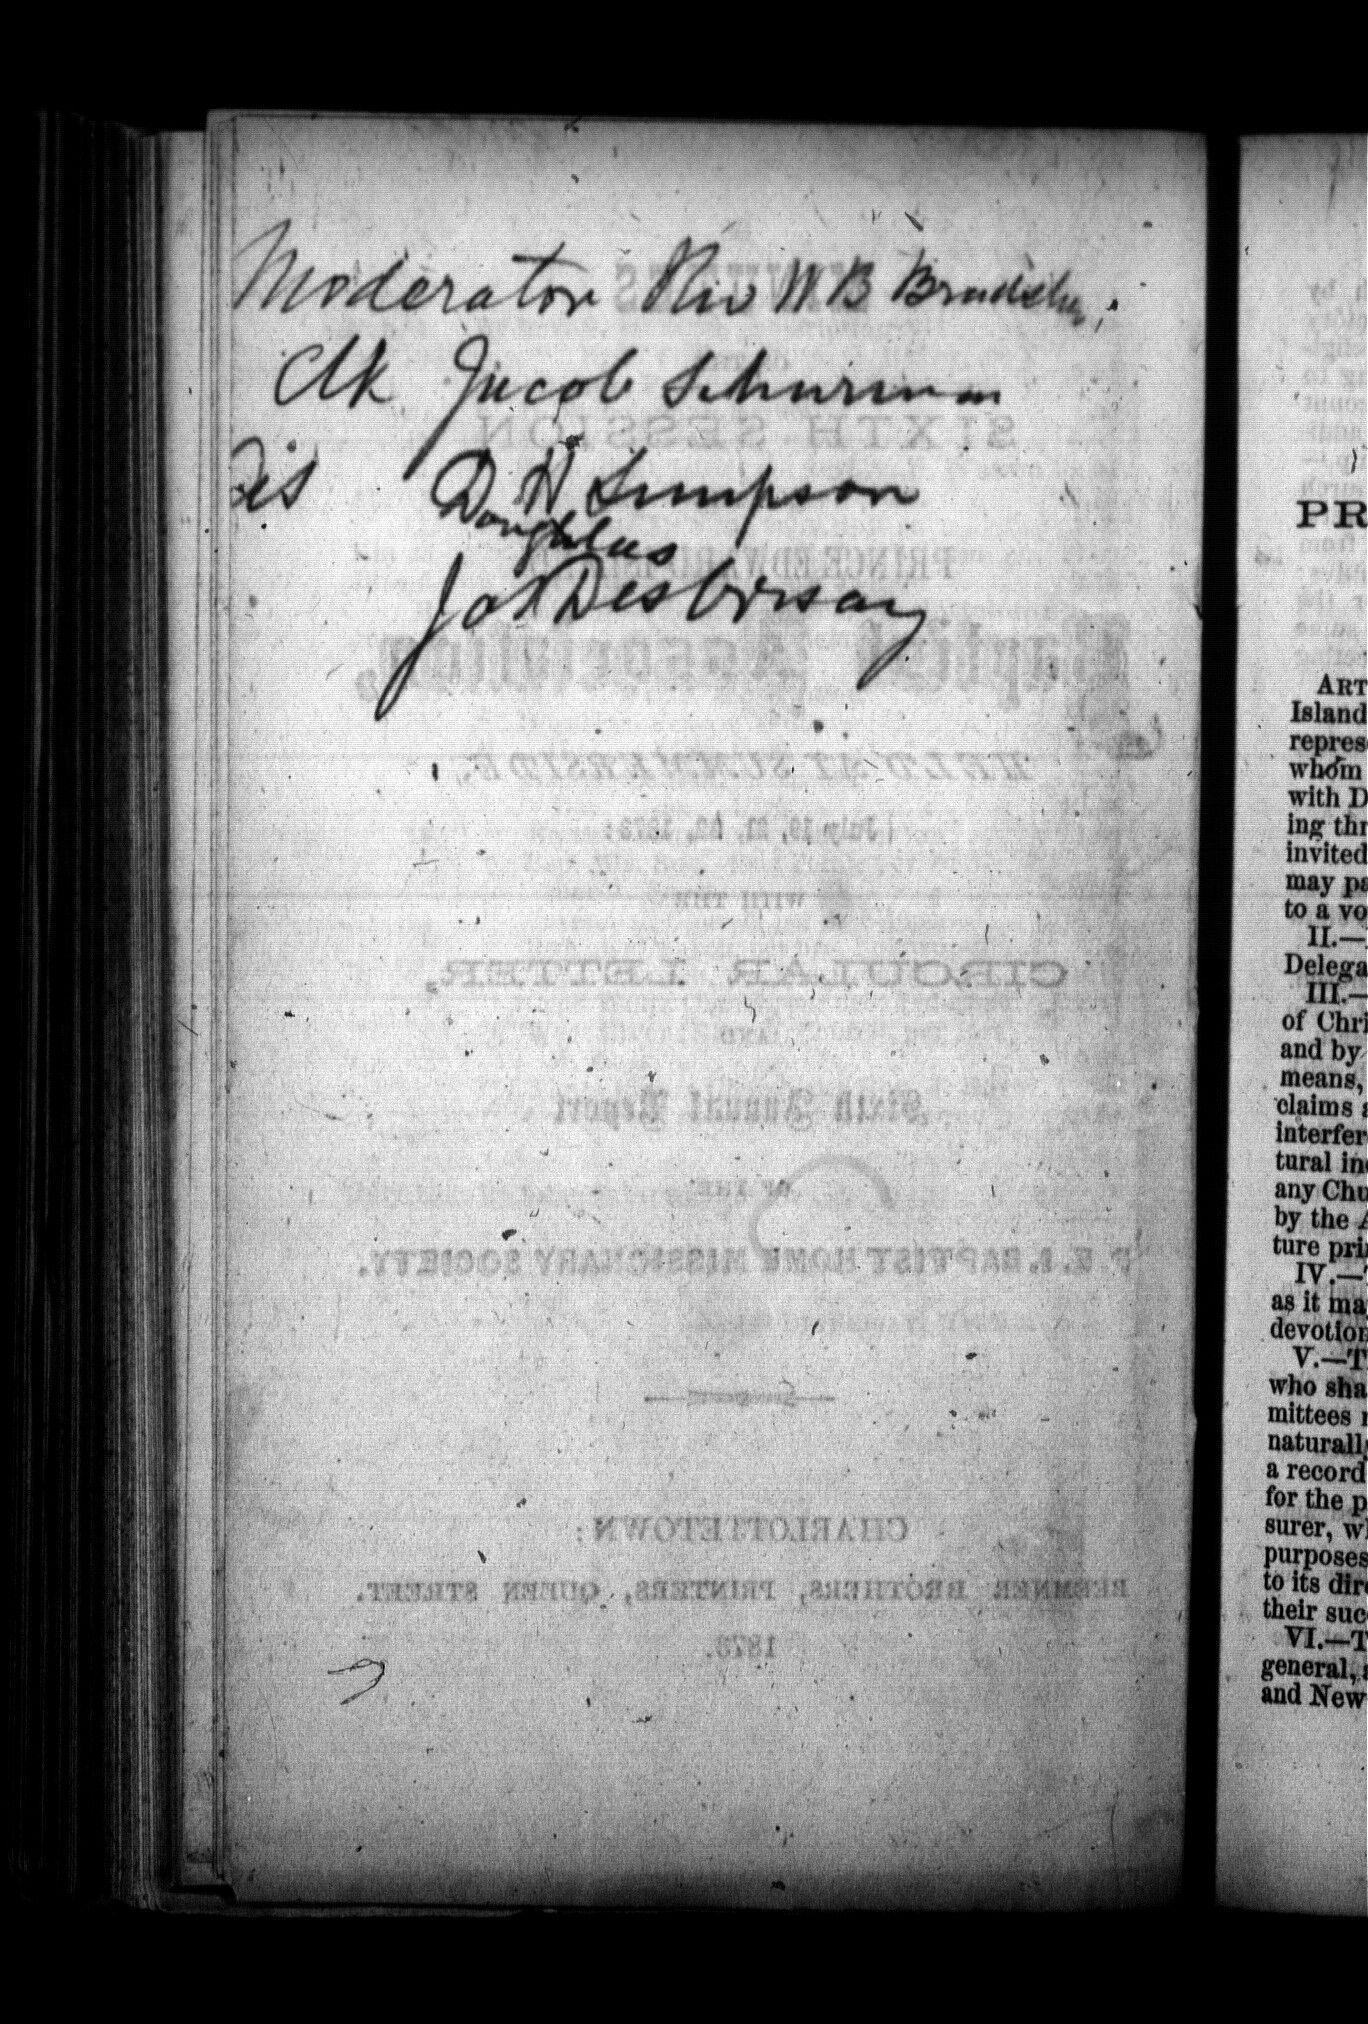 Moderator Rev W B Bradshaw
Clk Jacob Schurman
D H Simpson
Douglas
Jas Desbrisay
MINUTES
OF THE
SIXTH SESSION
PRINCE EDWARD
Baptist Association,
HELD AT SUMMERSIDE,
July 19, 21, 22, 1873:
WITH THE
CIRCULAR LETTER,
AND
Sixth Annual Report
OF THE
P. E. I. BAPTIST HOME MISSIONARY SOCIETY.
CHARLOTTETOWN:
BREMNER BROTHERS, PRINTERS, QUEEN STREET.
1873.
PR
ART
Island
repres
whom
with D
ing thr
invited
may pa
to a vo
II.—
Delega
III.—
of Chri
and by
means,
claims a
interfer
tural in
any Chu
by the A
ture pri
IV.—T
as it ma
devotion
V.—T
who sha
mittees
naturall
a record
for the p
surer, w
purposes
to its dire
their suc
VI.—T
general,
and New